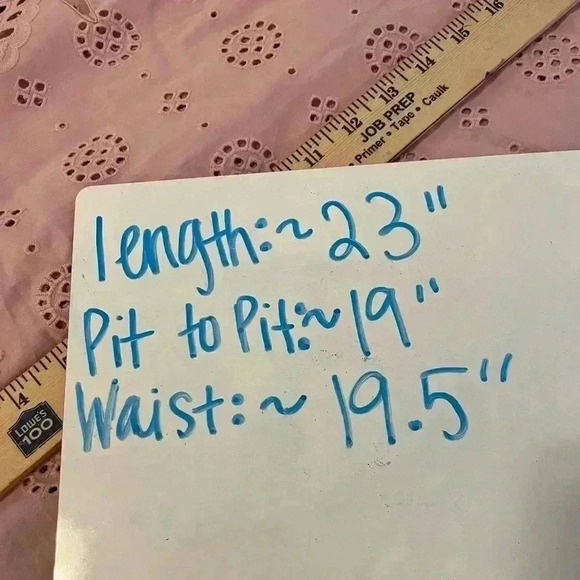 length:~23"
Pit to Pit:~19"
Waist:~ 19.5"
11 12 13 14 15 16
JOB PREP
Primer • Tape • Caulk
4
LOWE'S
100